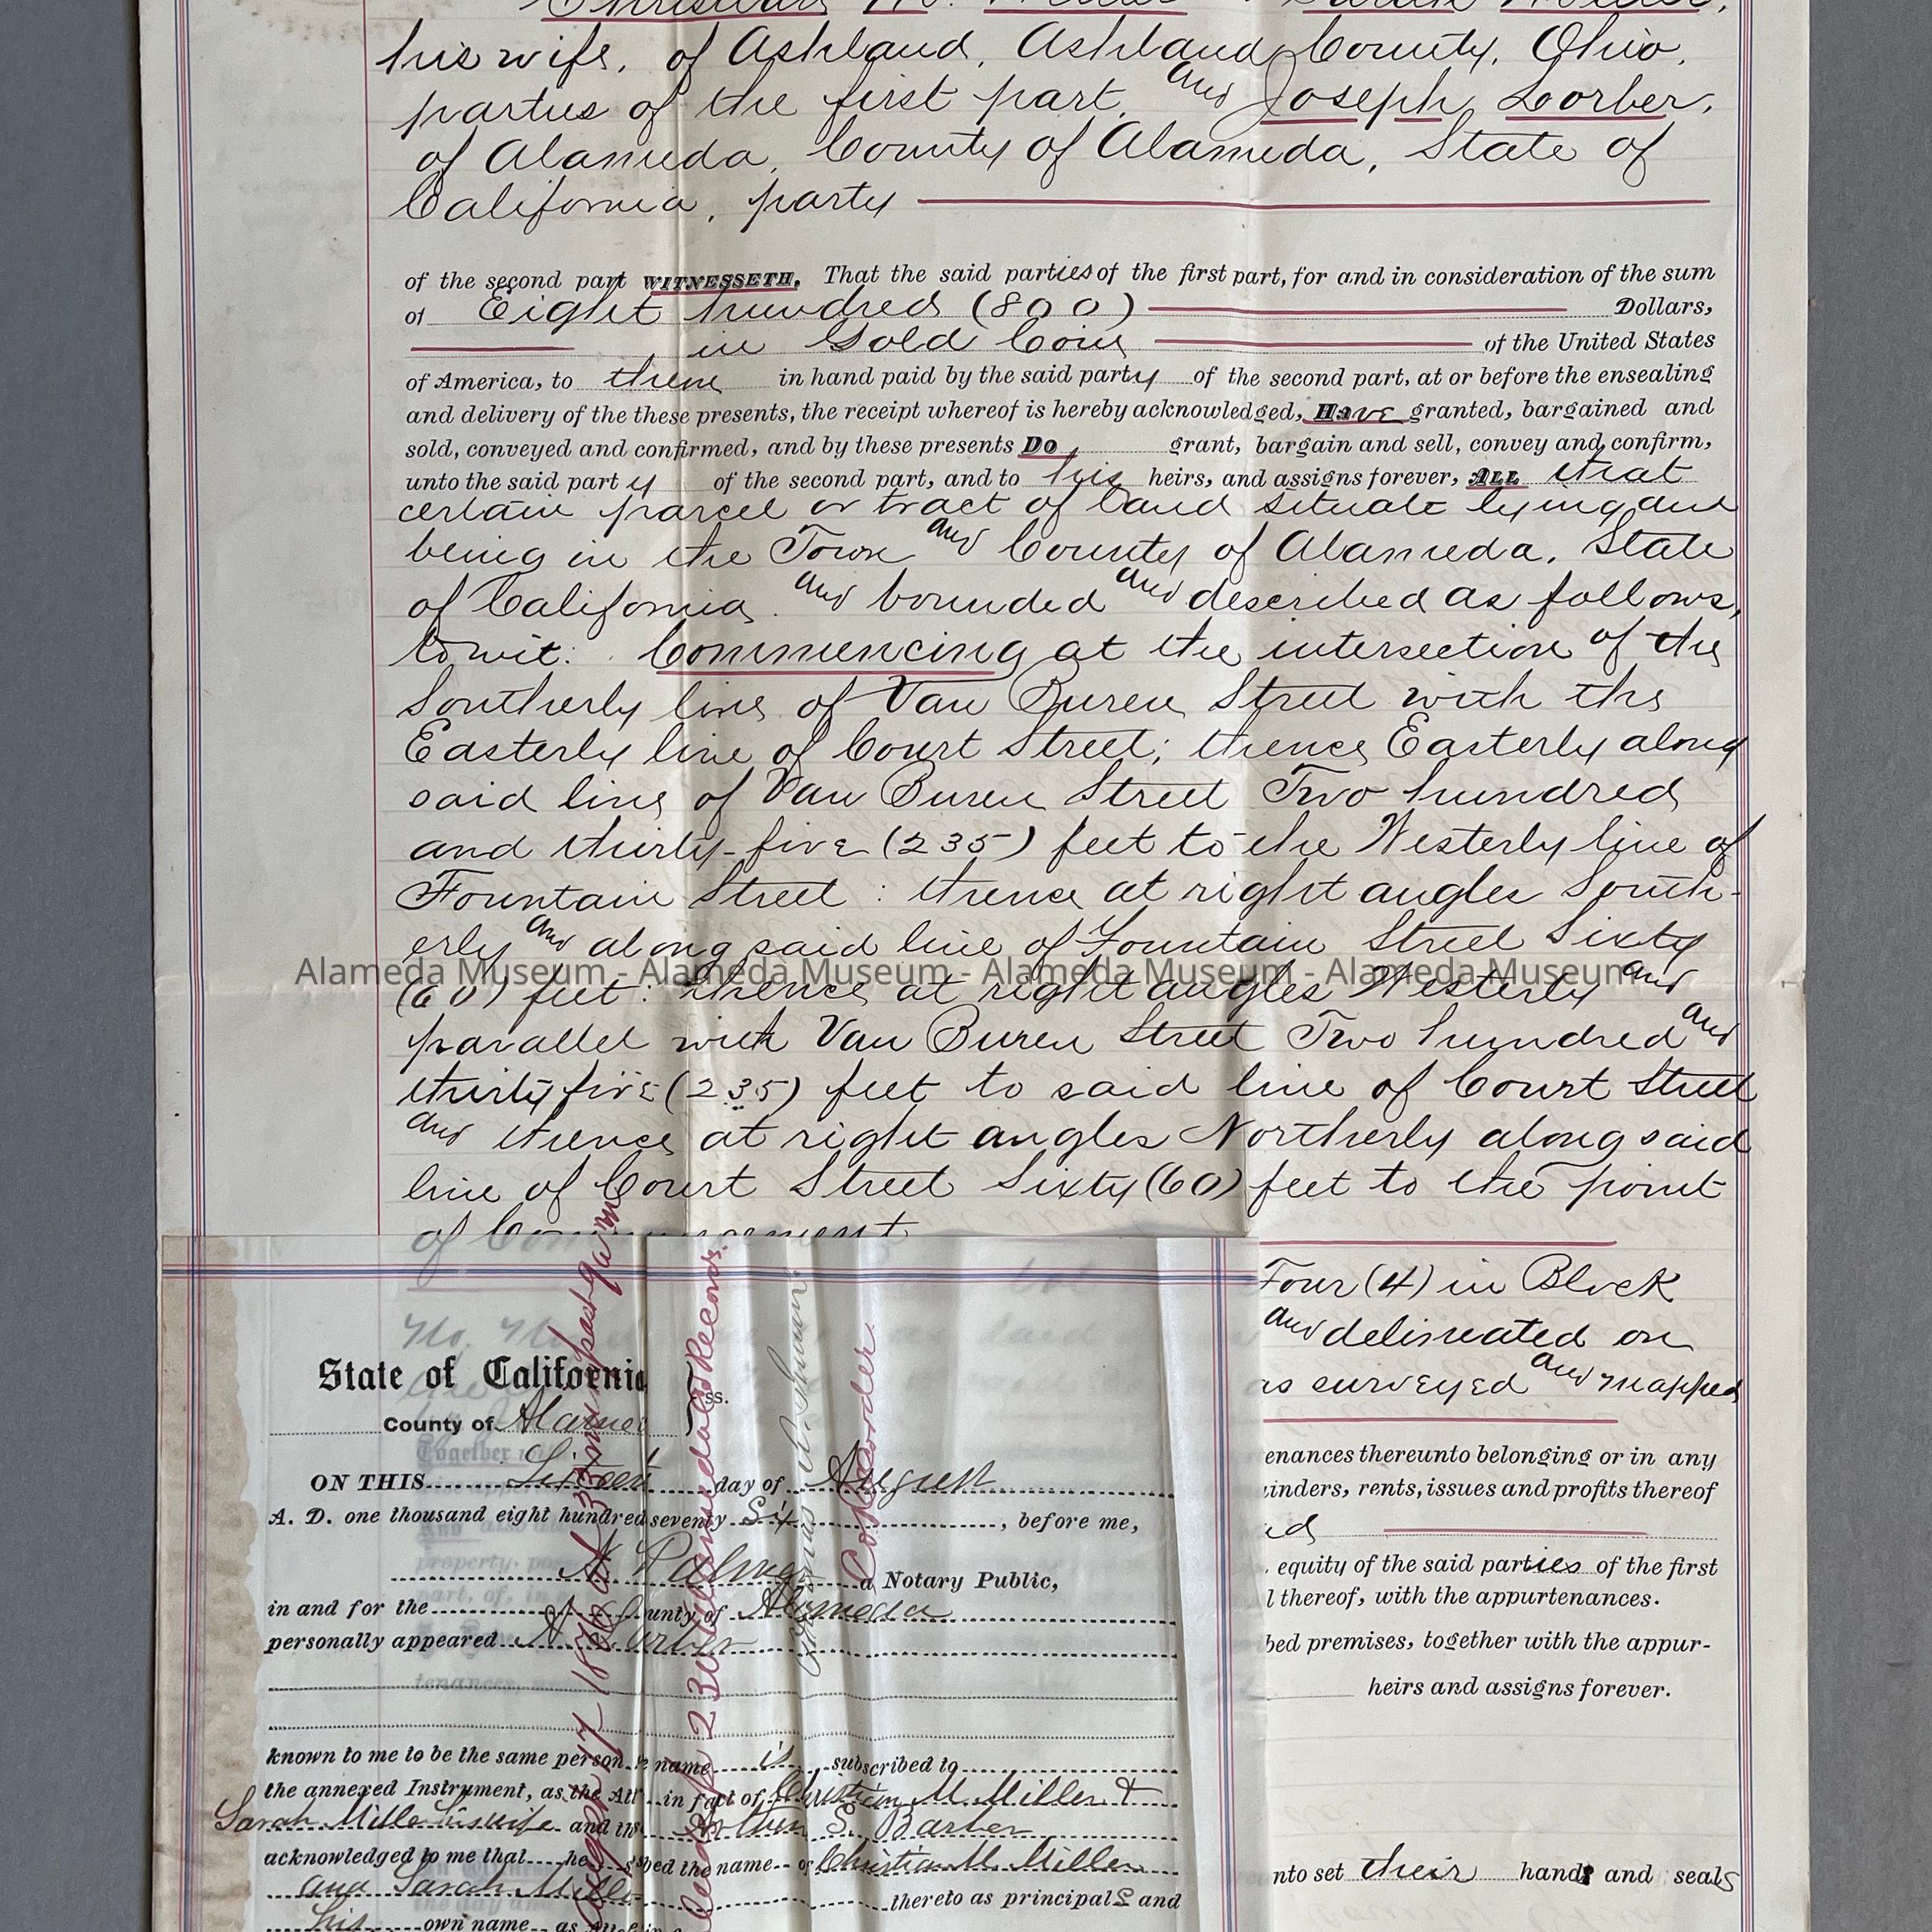 his wife, of Ashland, Ashland County, Ohio,
parties of the first part, and Joseph Lorber,
of Alameda, County of Alameda, State of
California, party
of the second part WITNESSETH, That the said parties of the first part, for and in consideration of the sum
of Eight hundred (800) Dollars,
in Gold Coin of the United States
of America, to them in hand paid by the said party of the second part, at or before the ensealing
and delivery of the these presents, the receipt whereof is hereby acknowledged, Have granted, bargained and
sold, conveyed and confirmed, and by these presents Do grant, bargain and sell, convey and confirm,
unto the said party of the second part, and to his heirs, and assigns forever, ALL that
certain parcel or tract of land situate lying and
being in the Town and County of Alameda, State
of California and bounded and described as follows,
towit: Commencing at the intersection of the
Southerly line of Van Buren Street with the
Easterly line of Court Street; thence Easterly along
said line of Van Buren Street Two hundred
and thirty-five (235) feet to the Westerly line of
Fountain Street: thence at right angles South-
erly and along said line of Fountain Street Sixty
Alameda Museum - Alameda Museum - Alameda Museum - Alameda Museum
(60) feet: thence at right angles Westerly and
parallel with Van Buren Street Two hundred and
thirty five (235) feet to said line of Court Street
and thence at right angles Northerly along said
line of Court Street Sixty (60) feet to the point
of Commencement
Four (4) in Block
and delineated on
as surveyed and mapped
enances thereunto belonging or in any
inders, rents, issues and profits thereof
equity of the said parties of the first
l thereof, with the appurtenances.
bed premises, together with the appur-
heirs and assigns forever.
nto set their hands and seals
State of California
ss.
County of Alamed
ON THIS Sixteen day of August
A. D. one thousand eight hundred seventy Six, before me,
a Notary Public,
in and for the unty of Alameda
personally appeared A.
known to me to be the same person name is subscribed to
the annexed Instrument, as the Att in fact of Christian M. Miller &
Sarah Miller his wife and th S. Barber
acknowledged to me that he bed the name of Christian M. Miller
and Sarah Miller thereto as principals and
his own name as Atto in
August 17 1876 at 3 min past 9 a m
230 Alameda Co Records.
Co Recorder